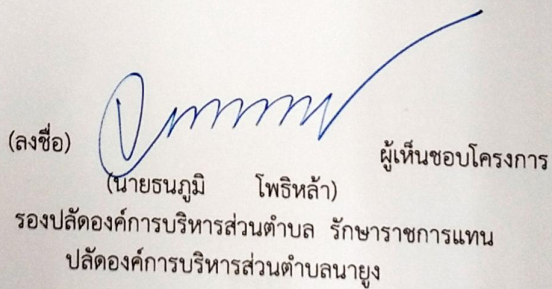 (ลงชื่อ) ผู้เห็นชอบโครงการ
(นายธนภูมิ โพธิหล้า)
รองปลัดองค์การบริหารส่วนตำบล รักษาราชการแทน
ปลัดองค์การบริหารส่วนตำบลนายูง